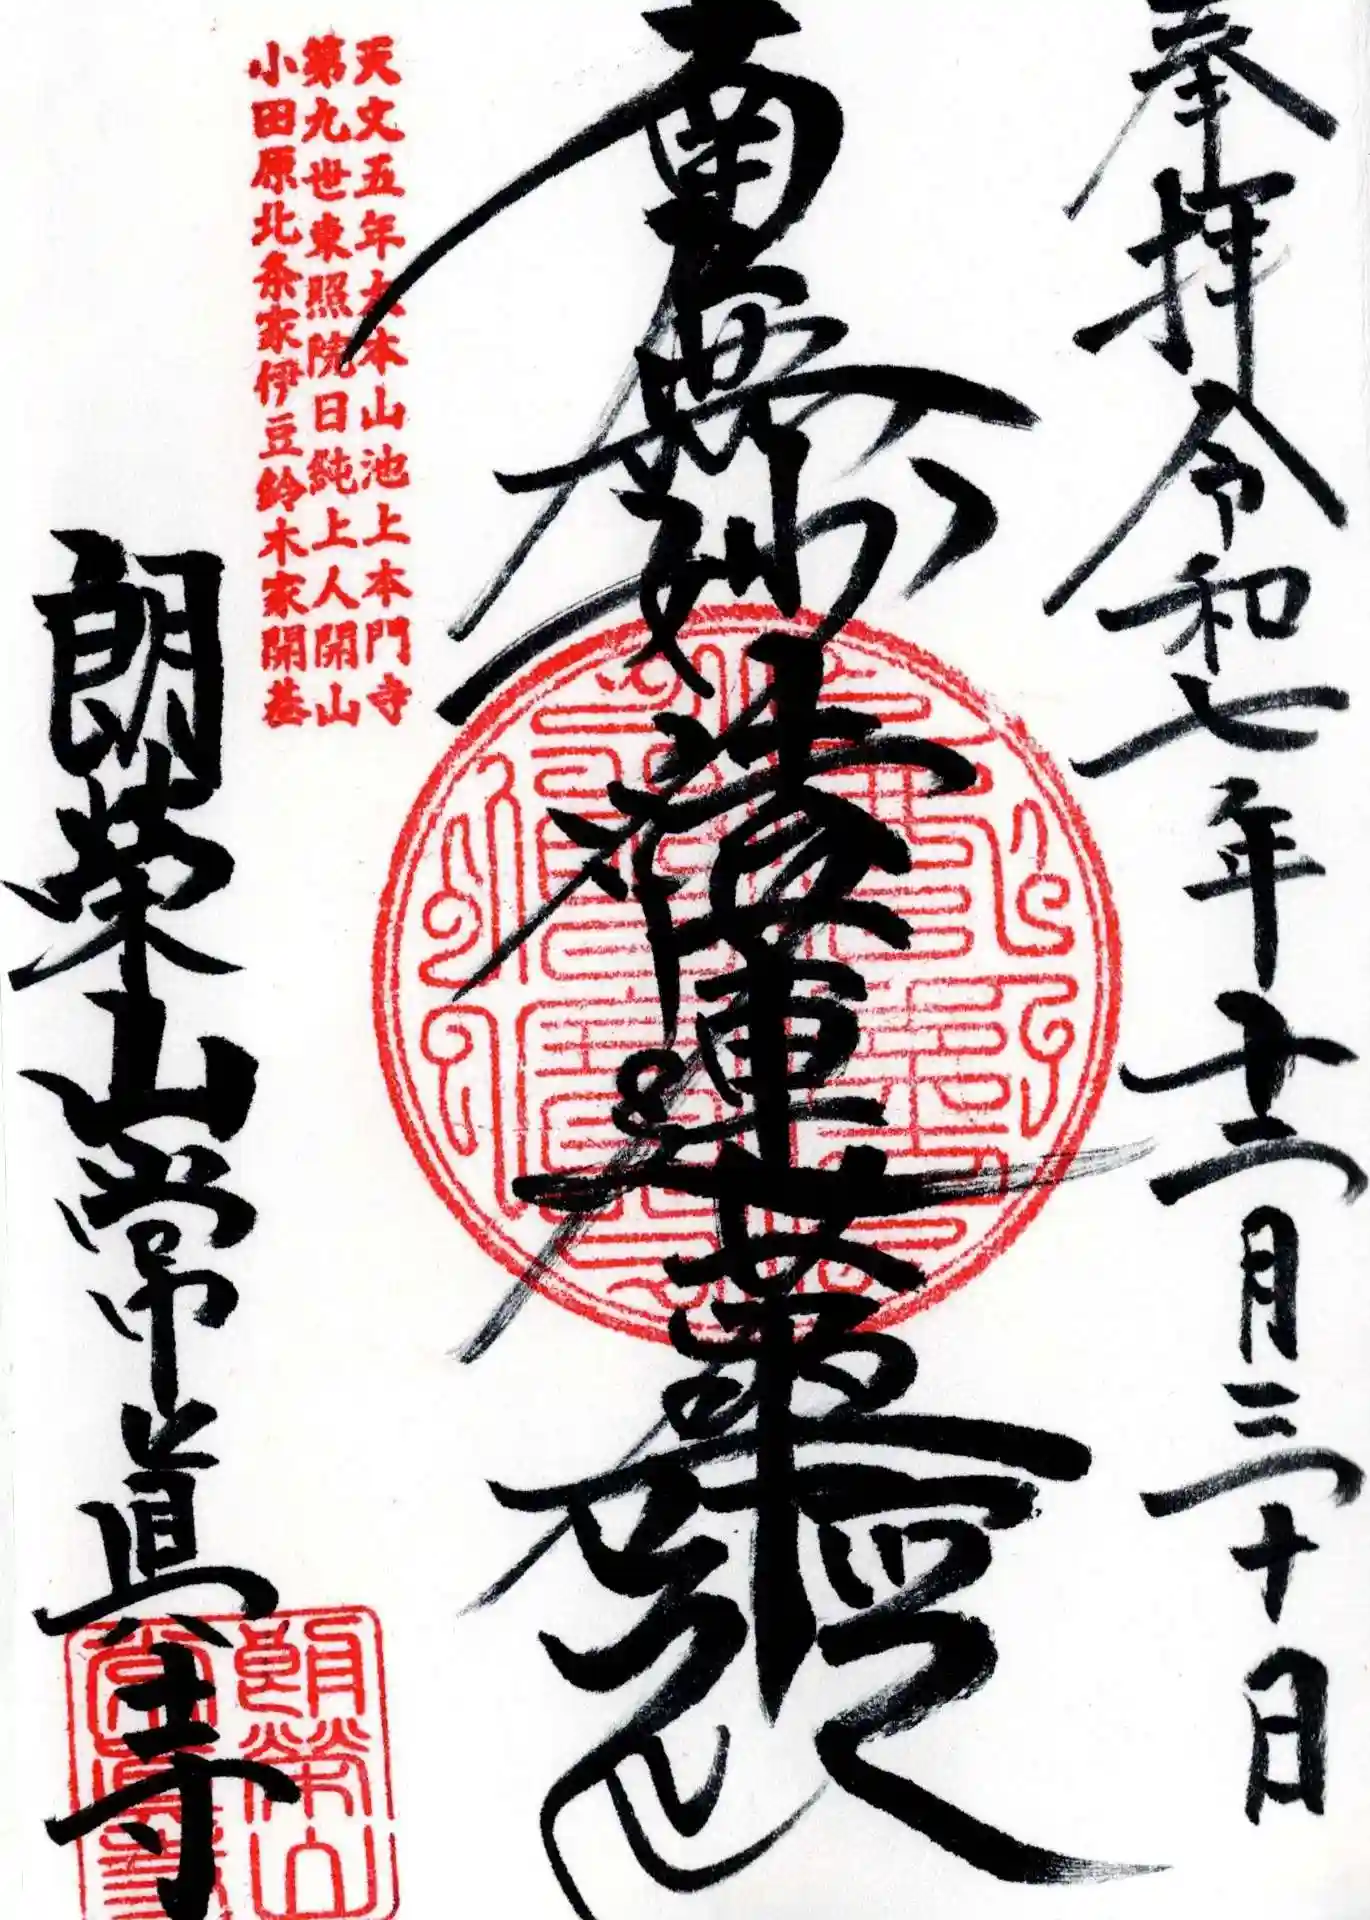 奉拝 令和七年十二月三十日
南無妙法蓮華経
天文五年大本山池上本門寺
第九世東照院日純上人開山
小田原北条家伊豆鈴木家開基
朗栄山常眞寺
朗榮山
常眞寺